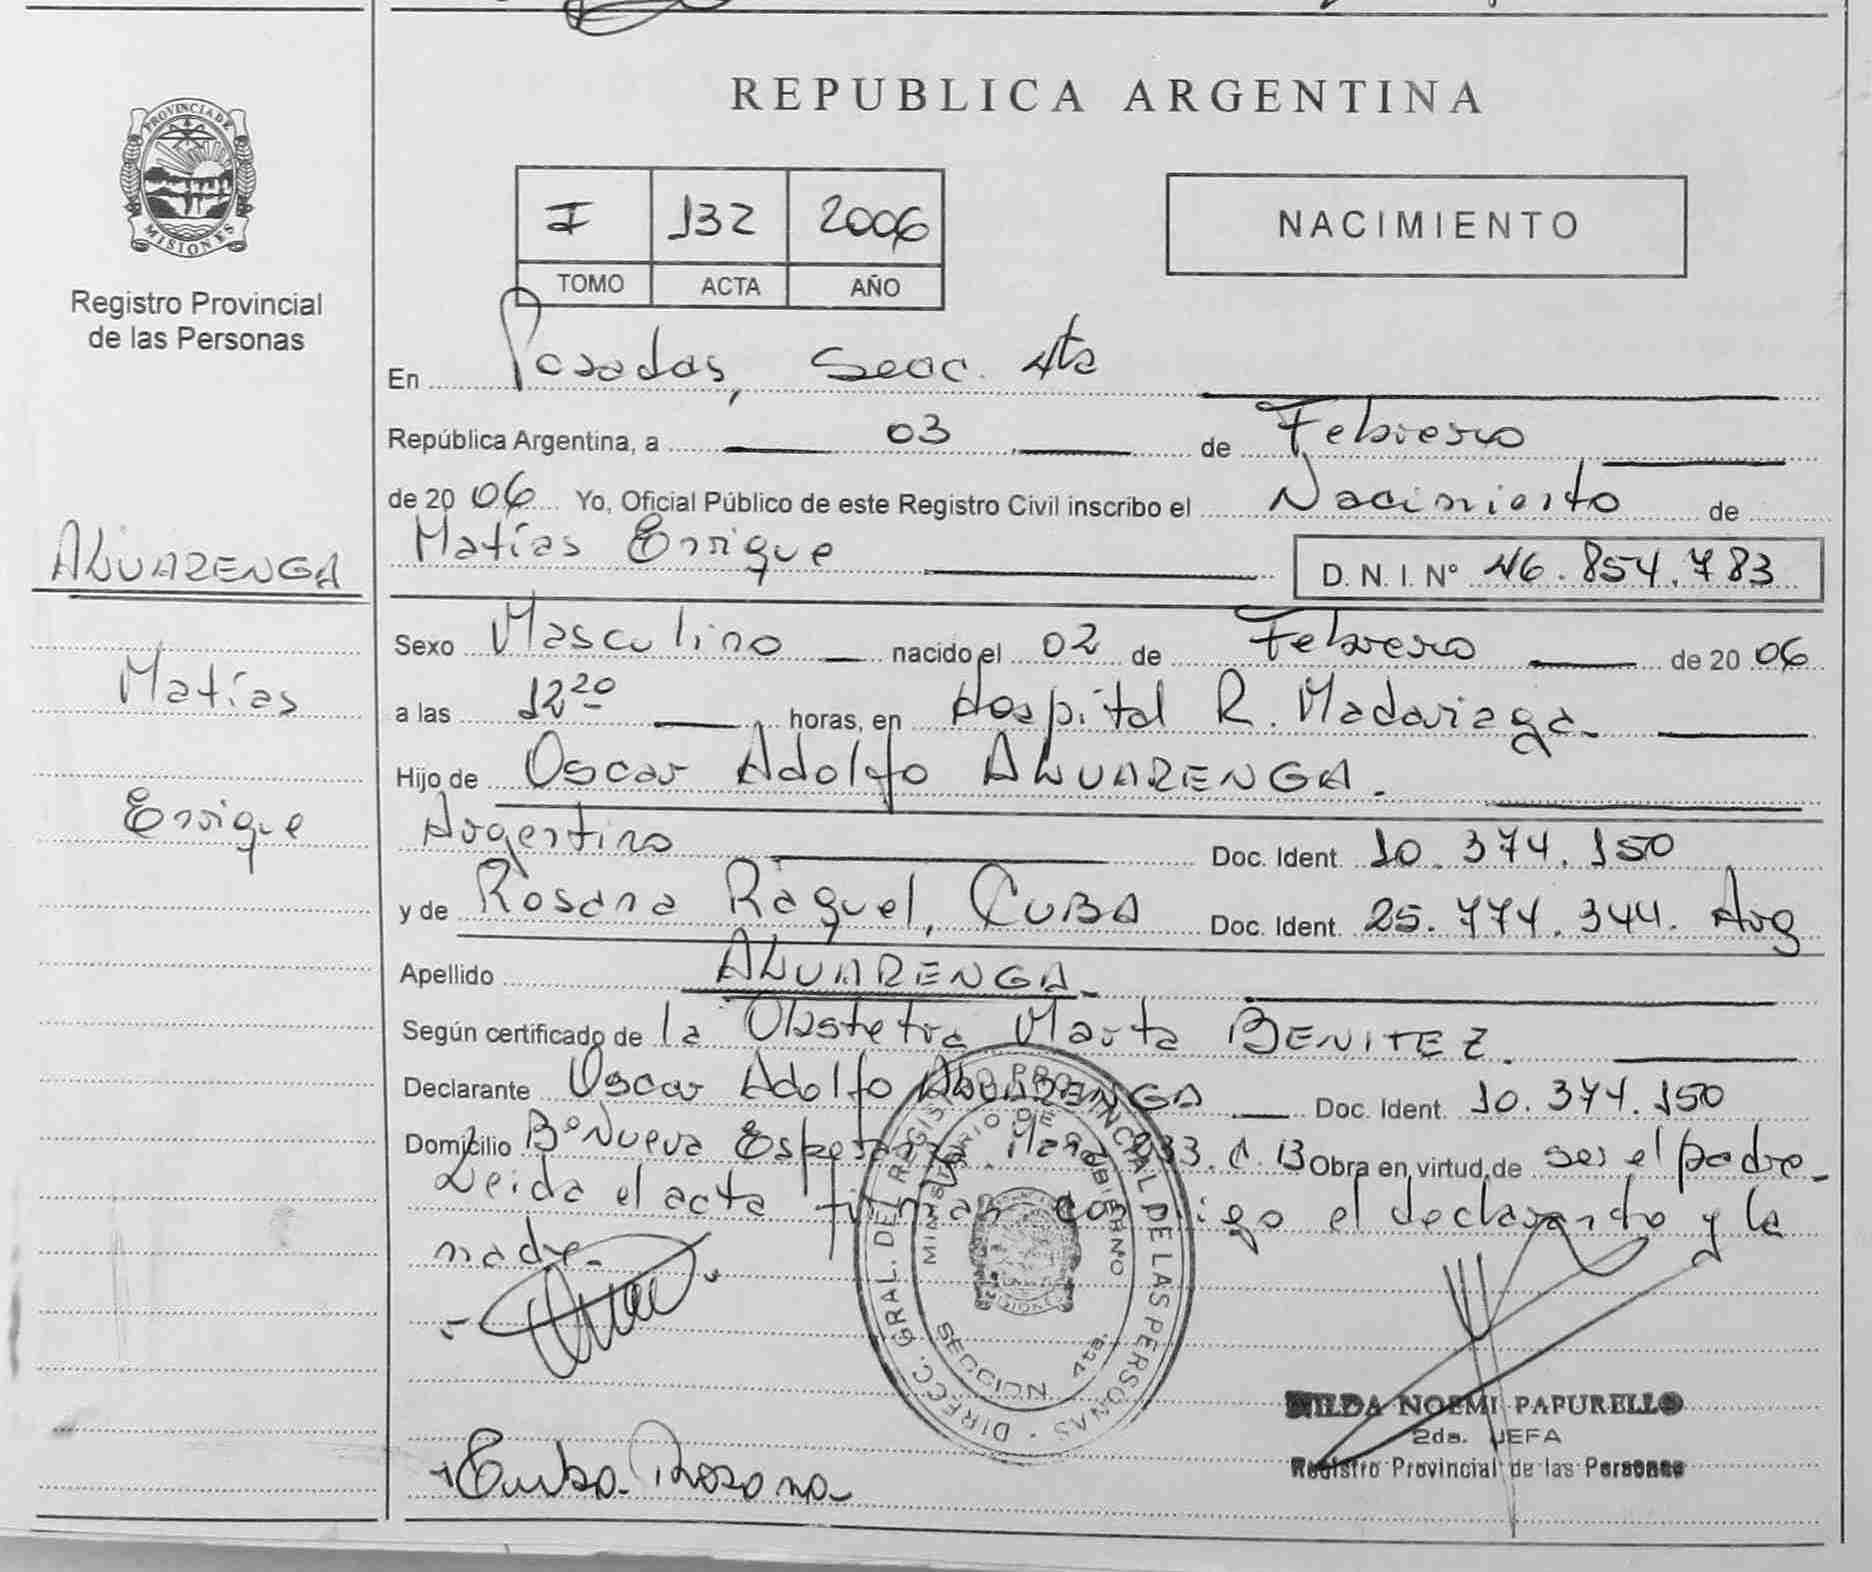 REPUBLICA ARGENTINA
PROVINCIA DE
MISIONES
Registro Provincial
de las Personas
I 132 2006
TOMO ACTA AÑO
NACIMIENTO
En Posadas, Secc. 4ta
República Argentina, a 03 de Febrero
de 2006 Yo, Oficial Público de este Registro Civil inscribo el Nacimiento de
Matías Enrique D. N. I. N° 46.854.783
ALVARENGA
Matías
Enrique
Sexo Masculino nacido el 02 de Febrero de 2006
a las 12 20 horas, en Hospital R. Madariaga.
Hijo de Oscar Adolfo ALVARENGA.
Argentino Doc. Ident. 10.374.150
y de Rosana Raquel, CUBA Doc. Ident. 25.774.344. Arg
Apellido ALVARENGA
Según certificado de la Obstetra Marta BENITEZ.
Declarante Oscar Adolfo ALVARENGA Doc. Ident. 10.374.150
Domicilio B° Nueva Esperanza. 233. C. 13 Obra en virtud de ser el padre
Leida el acta firman conmigo el declarando y la
madre.
DIRECC. GRAL. DEL REGISTRO PROVINCIAL DE LAS PERSONAS
MINISTERIO DE GOBIERNO
SECCION 4ta.
HILDA NOEMI PAPURELLO
2da. JEFA
Registro Provincial de las Personas
Cuba Rosana